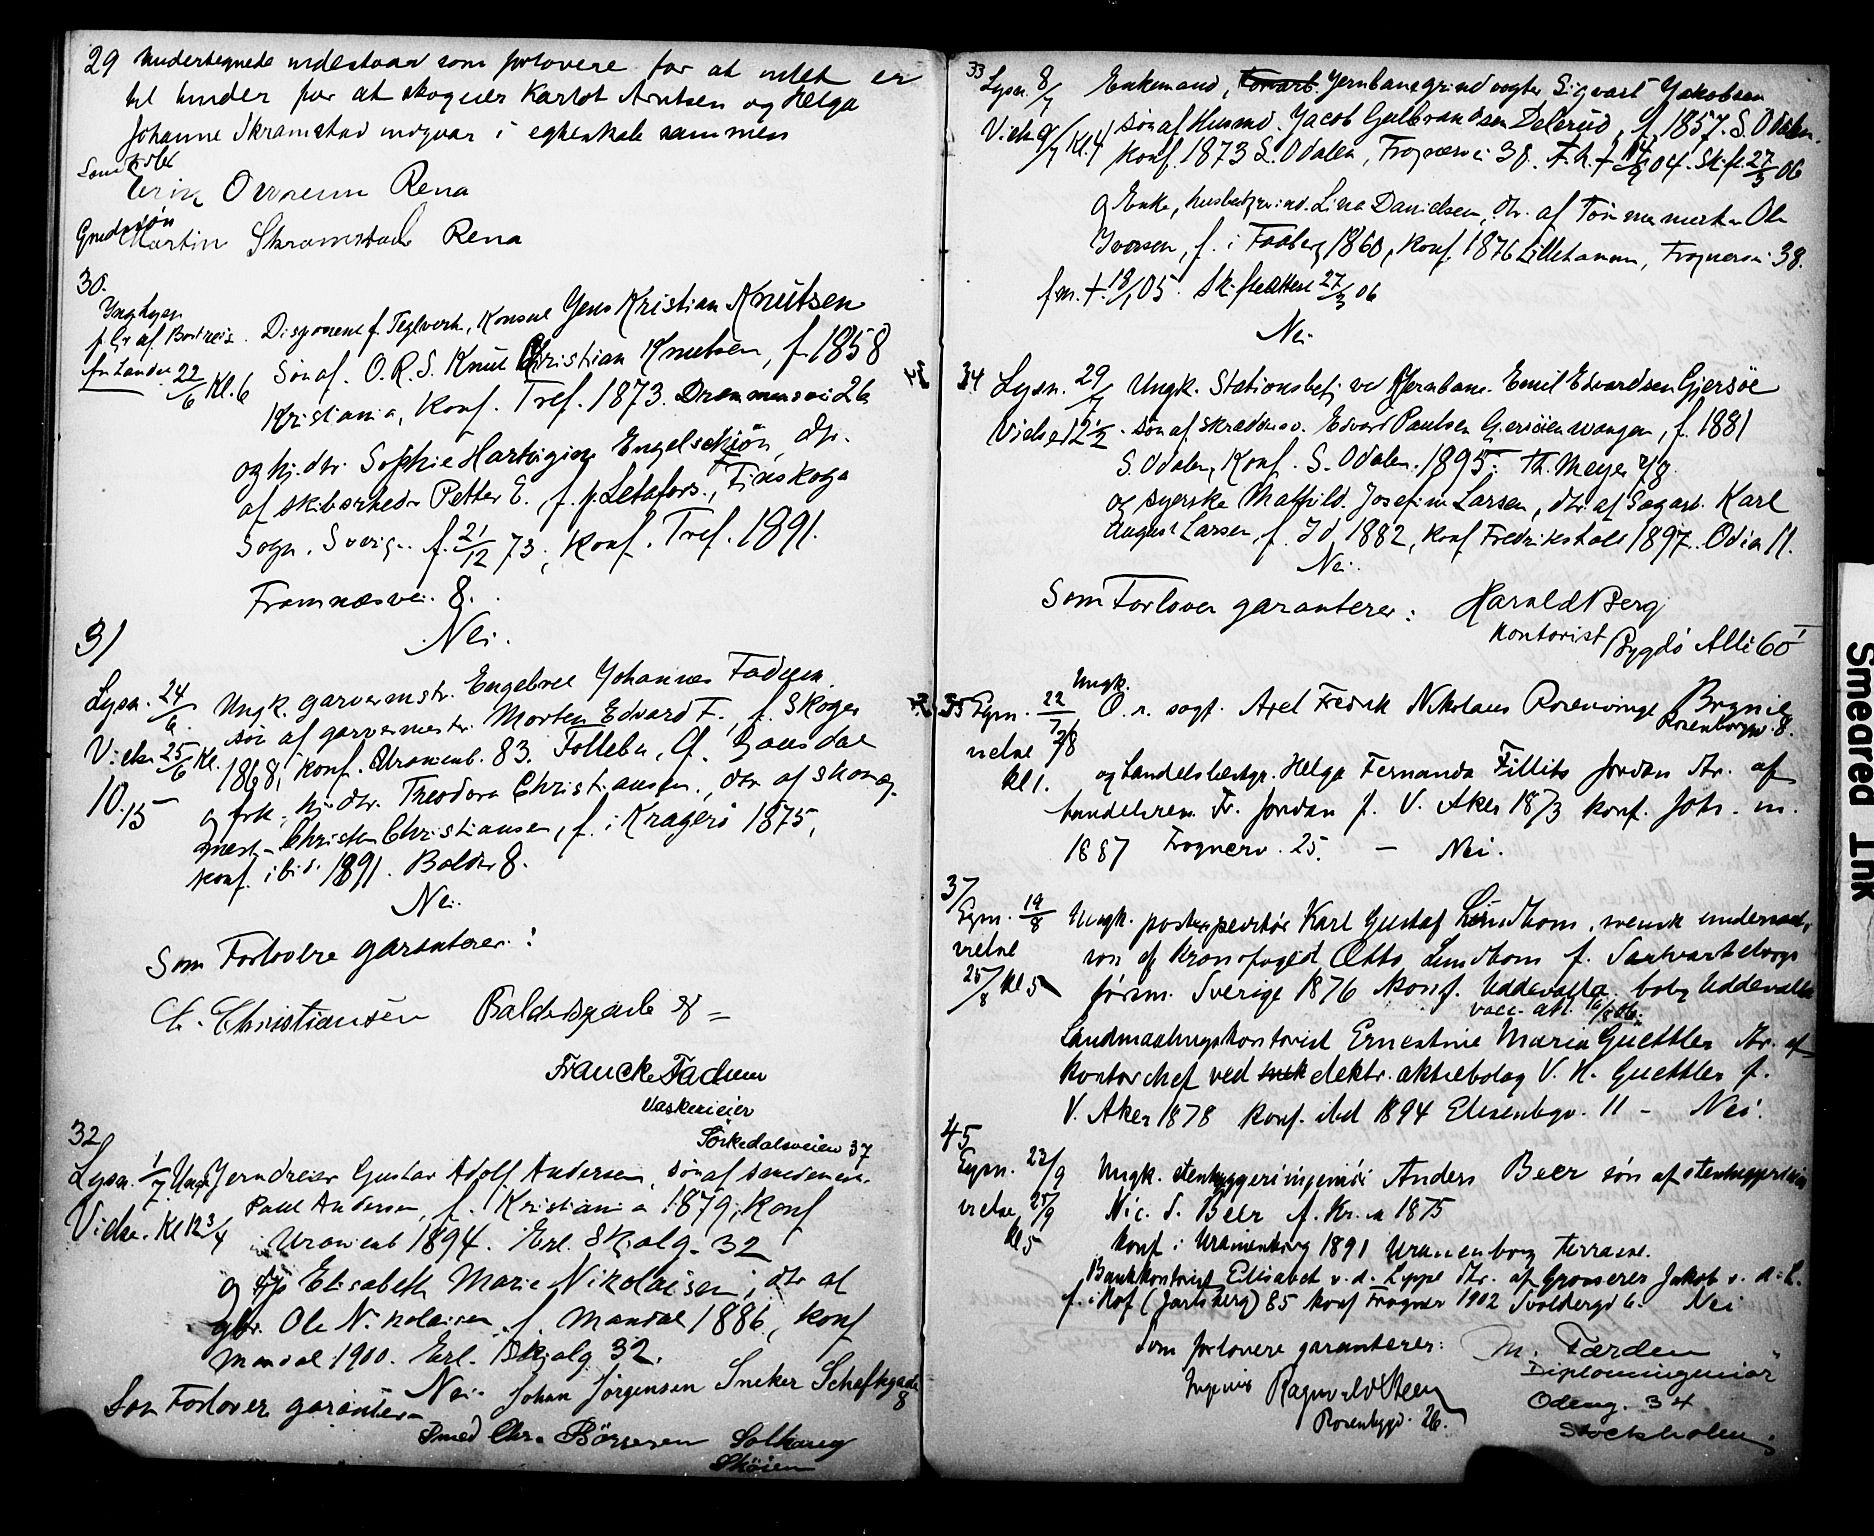 29 Undertegnede indestaar som forlovere for at intet er
til hinder for at skogeier Karlot Arntsen og Helga
Johanne Skramstad indgaar i egteskab sammen
Erik Rena
Martin Skramstad Rena
30.
f. Gr af Bortreis. Disponent f. Teglverk, Konsul Jens Kristian Knutsen
22/6 Kl. 6 Søn af O.R.S. Knut Christian Knutsen, f. 1858
Kristiania, Konf. Tref. 1873. Drammensvei 26
og hj. dtr. Sophie Hartvigine Engelschiøn, dtr.
af skibsrheder Petter E., f. p. Letafors, Finskoga
Sogn, Sverig. f. 21/12 73, Konf. Tref. 1891.
Framnæsvei 8.
Nei.
31
Lysn. 24/6. Ungk. garvermstr. Engebret Johannes Fadum
søn af garvermester Morten Edvard F., f. Skoger
Vielse 25/6 Kl. 1868, konf. Uranienb. 83. Follebu, Ø. Gausdal
10.15 og frk. hj. dtr. Theodora Christiansen, dtr af skomag.
mest. Christen Christiansen, f. i Kragerø 1875,
konf. ibid. 1891. Balder 8.
Nei.
Som Forlovere garanterer:
C. Christiansen Baldersgade 8
Francke Fadum
Vaskerieier
Sørkedalsveien 37
32
Lysn. 1/7. Ungk. Jerndreier Gustav Adolf Andersen, søn af smedem.
Paul Andersen, f. Kristiania 1879, Konf
Vielse. Kl 12 3/4 Uranienb 1894. Erl. Skjalg. 32
og Elisabeth Marie Nikolaisen, dtr af
gbr. Ole Nikolaisen, f. Mandal 1886, konf
Mandal 1900. Erl. Skjalg 32.
Nei.
Som Forlover garanterer Johan Jørgensen Sneker Scheftegade 8
Smed Chr. Børresen Solhaug
Skøien
33
Lysn. 8/7 Enkemand, Jernbanegrindvogter Sigvart Jakobsen
Vielse 9/7 Kl. 4 søn af Husmd. Jacob Gulbrandsen Delerud, f. 1857. S. Odalen.
Konf. 1873 S. Odalen, Frognervei 38. F. h. † 04. Sk. fr. 27/3 06
og Enke, Lina Danielsen, dtr. af Tømmermester Ole
Iversen, f. i Faaberg 1860, Konf. 1876 Lillehammer, Frognervei 38.
f. m. † 18/1 05. Sk. fr. 27/3 06
Nei
34 Lysn. 29/7 Ungk. Stationsbetj. ved Jernbane. Emil Edvardsen Gjersøe
Vielse 12 1/2. søn af skrædder Edvard Paulsen, f. 1881
S. Odalen, Konf. S. Odalen 1895. Th. Meyer 7/8.
og syerske Mathild. Josefine Larsen, dtr. af Sagarb. Karl
August Larsen, f. Id 1882, konf Fredrikshald 1897. Odin 11.
Nei.
Som Forlover garanterer: Harald Berg
Kontorist Bygdø Allé 60
35 Lysn. 22/7 Ungk. O. r. sagf. Axel Fredrik Nikolaus Rosenvinge Brynie
Rosenborggd. 8.
vielse 7/8
kl 1. og handelsbestyr. Helga Fernanda Fillits Jordan dtr. af
handelsrem. Fr. Jordan f. V. Aker 1873 konf. Joh. m.
1887 Frognerv. 25. – Nei.
37
Lysn. 19/8 Ungk. postexpeditør Karl Gustaf Lindbom, svensk undersaat,
vielse søn af Kronofoged Otto Lindbom f.
25/8 kl 5 förs. Sverige 1876 konf. Uddevalla. bolig Uddevalla
vacc. att.
Landmaalingskontorist Ernestine Maria Guettler dtr. af
kontorchef ved elektr. aktiebolag V. H. Guettler f.
V. Aker 1878 konf. ibd 1894 Elisenbgv. 11 – Nei.
45
Lysn. 23/9 Ungk. stenhuggeriingeniør Anders Beer søn af stenhuggeri
vielse 25/9 Nic. S. Beer f. Kr.a 1875
kl 5 konf. i Uranienborg 1891 Uranienborg terrasse.
Bankkontorist Elisabet v. d. Lippe dtr. af Grosserer Jakob v. d. L.
f. i Hof (Jarlsberg) 85 konf Frogner 1902 Svoldergd 6. Nei
Som forlovere garanterer: M. Færden
Diplomingeniør
Odeng. 34
Stockholm
Ingeniør Ragnvald Steen
Rosenbggd. 26.
Smeared Ink